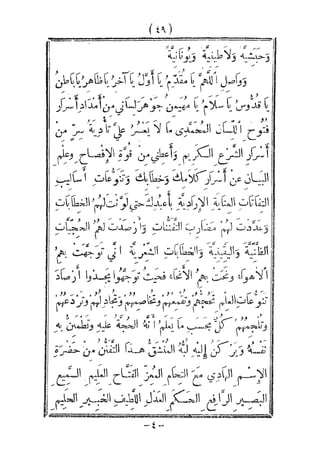 ( ٤٩ )
وَحَبَشِيَّة وَلَاطِينِيَّة وَيُونَانِيَّة
وَوَاصِل اللَّهُمَّ يَا مُقَدِّمُ يَا أَوَّلُ يَا آخِرُ يَا ظَاهِرُ يَا بَاطِنُ
يَا قُدُّوسُ يَا سَلَامُ يَا مُهَيْمِنُ جَوْهَرَ لِسَانِي مِنْ أَمْدَادِ أَسْرَارِ
فُتُوحِ اللِّسَانِ الْمُحَمَّدِي مَا لَا يَعْسُرُ عَلَيَّ تَأْدِيَةُ سِرٍّ مِنْ
أَسْرَارِ الشَّرْعِ الْكَرِيمِ وَأَعْطِنِي مِنْ قُوَّةِ الْإِفْصَاحِ وَعِلْمِ
الْبَيَانِ عَنْ أَسْرَارِ كَلَامِكَ وَخِطَابِكَ وَتَنَوُّعَاتِ أَسَالِيبِ
الْتِفَاتَاتِ الْعِنَايَةِ الْإِرَادِيَّةِ بِأَعْبُدِكَ حَتَّى لَوَّنَتْ لَهُمُ الْخِطَابَاتِ
وَعَدَّدَتْ لَهُمْ مَضَارِبَ التَّفَنُّنَاتِ وَأَرْصَدَتْ لَهُمُ الْحُجِّيَّاتِ
الظَّنِّيَّةَ وَالْيَقِينِيَّةَ وَالْخِطَابَاتِ الشِّعْرِيَّةَ أَنَّى تَوَجَّهَتْ بِهِمُ
الْأَهْوَاءُ وَنَحَتْ بِهِمُ الْأَنْحَاءُ فَحَيْثُ تَوَجَّهُوا يَجِدُوا أَرْصَادَ
تَنَوُّعَاتِ الْعِلْمِ تَحُجُّهُمْ وَتُفْحِمُهُمْ وَتُخَاصِمُهُمْ وَتُجَادِلُهُمْ وَتَرْدَعُهُمْ
وَتُلْجِمُهُمْ كُلٌّ بِحَسَبِ مَا يَعْلَمُ أَنَّهُ الْحُجَّةُ عَلَيْهِ وَتَطْمَئِنُّ بِهِ
نَفْسُهُ وَيَرْكَنُ إِلَيْهِ لُبُّهُ الْمُنْشَقُّ هَذَا التَّفَنُّنُ مِنْ حَضْرَةِ
الْإِسْمِ الْهَادِي مَعَ الْتِحَامِ الْمُعِزِّ الْفَتَّاحِ الْعَلِيمِ السَّمِيعِ
الْبَصِيرِ الرَّافِعِ الْحَكَمِ الْعَدْلِ اللَّطِيفِ الْخَبِيرِ الْحَلِيمِ
- ٤ -